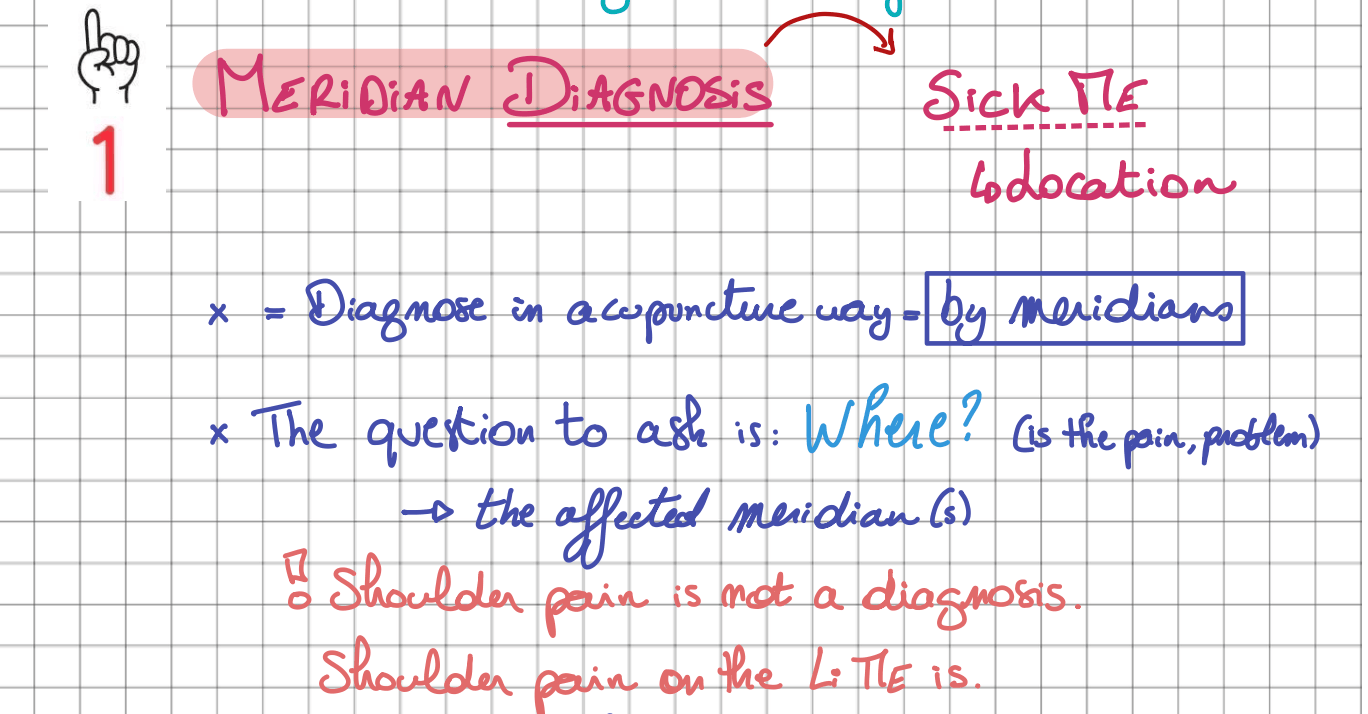 1
MERIDIAN DIAGNOSIS
Sick ME
↳ Location
x = Diagnose in acupuncture way = by meridians
x The question to ask is: Where? (is the pain, problem)
→ the affected meridian(s)
! Shoulder pain is not a diagnosis.
Shoulder pain on the Li ME is.